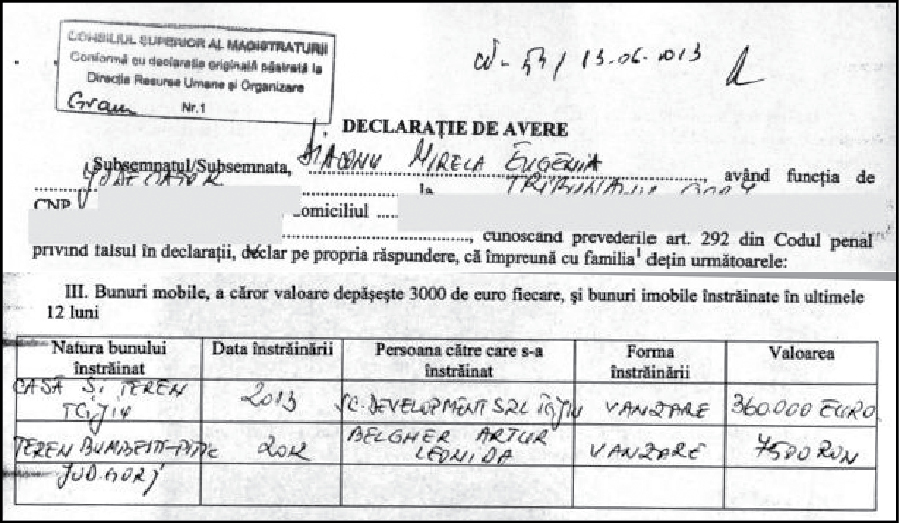 CONSILIUL SUPERIOR AL MAGISTRATURII
Conformă cu declarație originală păstrată la
Direcția Resurse Umane și Organizare
Nr.1
13.06.2013
DECLARAȚIE DE AVERE
Subsemnatul/Subsemnata, DIACONU MIRELA EUGENIA, având funcția de
JUDECATOR la TRIBUNALUL GORJ
CNP domiciliul
, cunoscând prevederile art. 292 din Codul penal
privind falsul în declarații, declar pe propria răspundere, că împreună cu familia1 dețin următoarele:
III. Bunuri mobile, a căror valoare depășește 3000 de euro fiecare, și bunuri imobile înstrăinate în ultimele
12 luni
Natura bunului înstrăinat Data înstrăinării Persoana către care s-a înstrăinat Forma înstrăinării Valoarea
CASĂ ȘI TEREN 2013 SC. DEVELOPMENT SRL VANZARE 360.000 EURO
TEREN 2012 BELGHER ARTUR LEONIDA VANZARE 7500 RON
JUD. GORJ